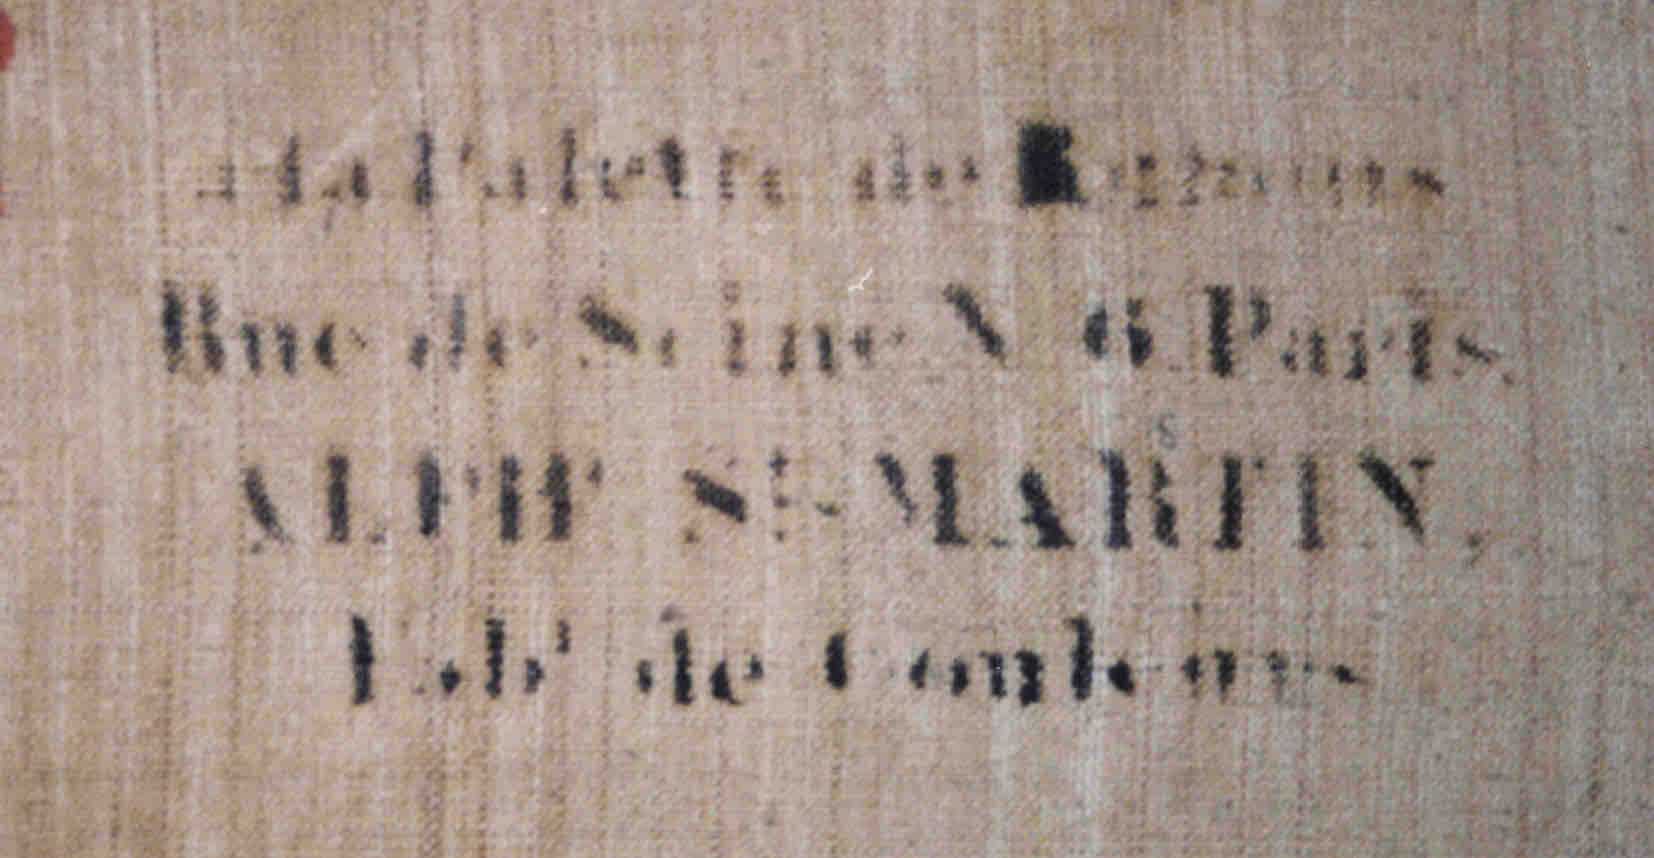 à la Palette de
Rue de Seine N 6 Paris.
ALPH^e S^t MARTIN,
Fab^t de Couleurs